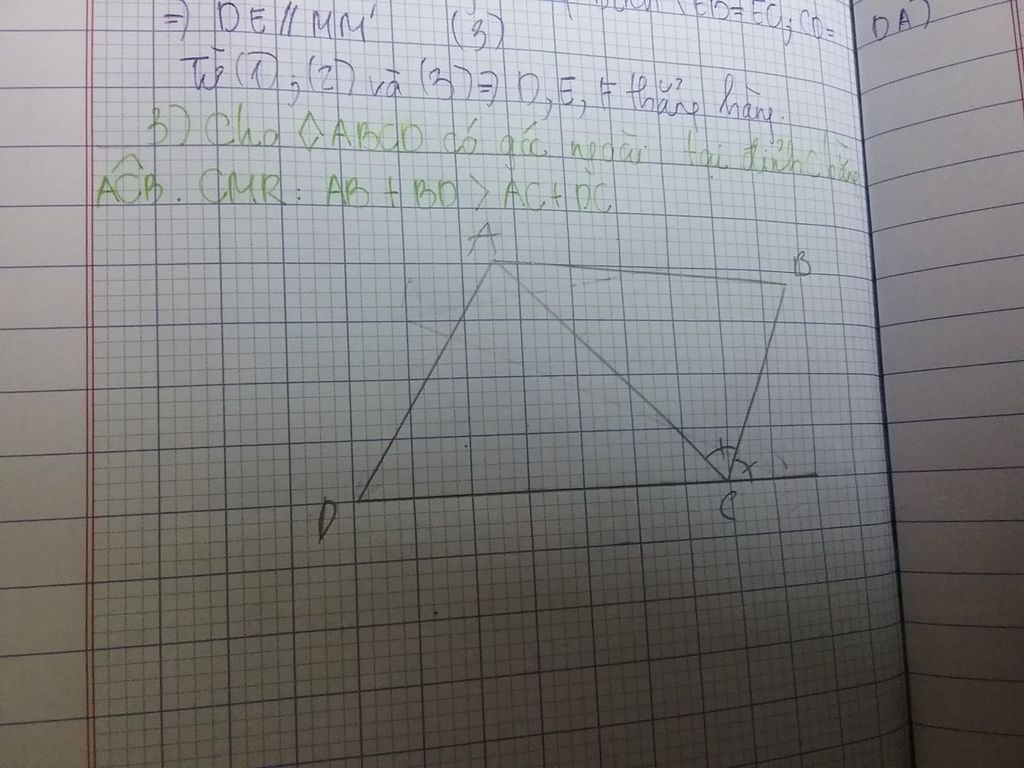 (ED=EC, CD= DA)
=) DE // MM' (3)
Từ (1); (2) và (3) => D, E, F thẳng hàng.
3) Cho ◇ABCD có góc ngoài tại đỉnh C bằng
ACB. CMR: AB + BD > AC + DC
A
B
D
C
x